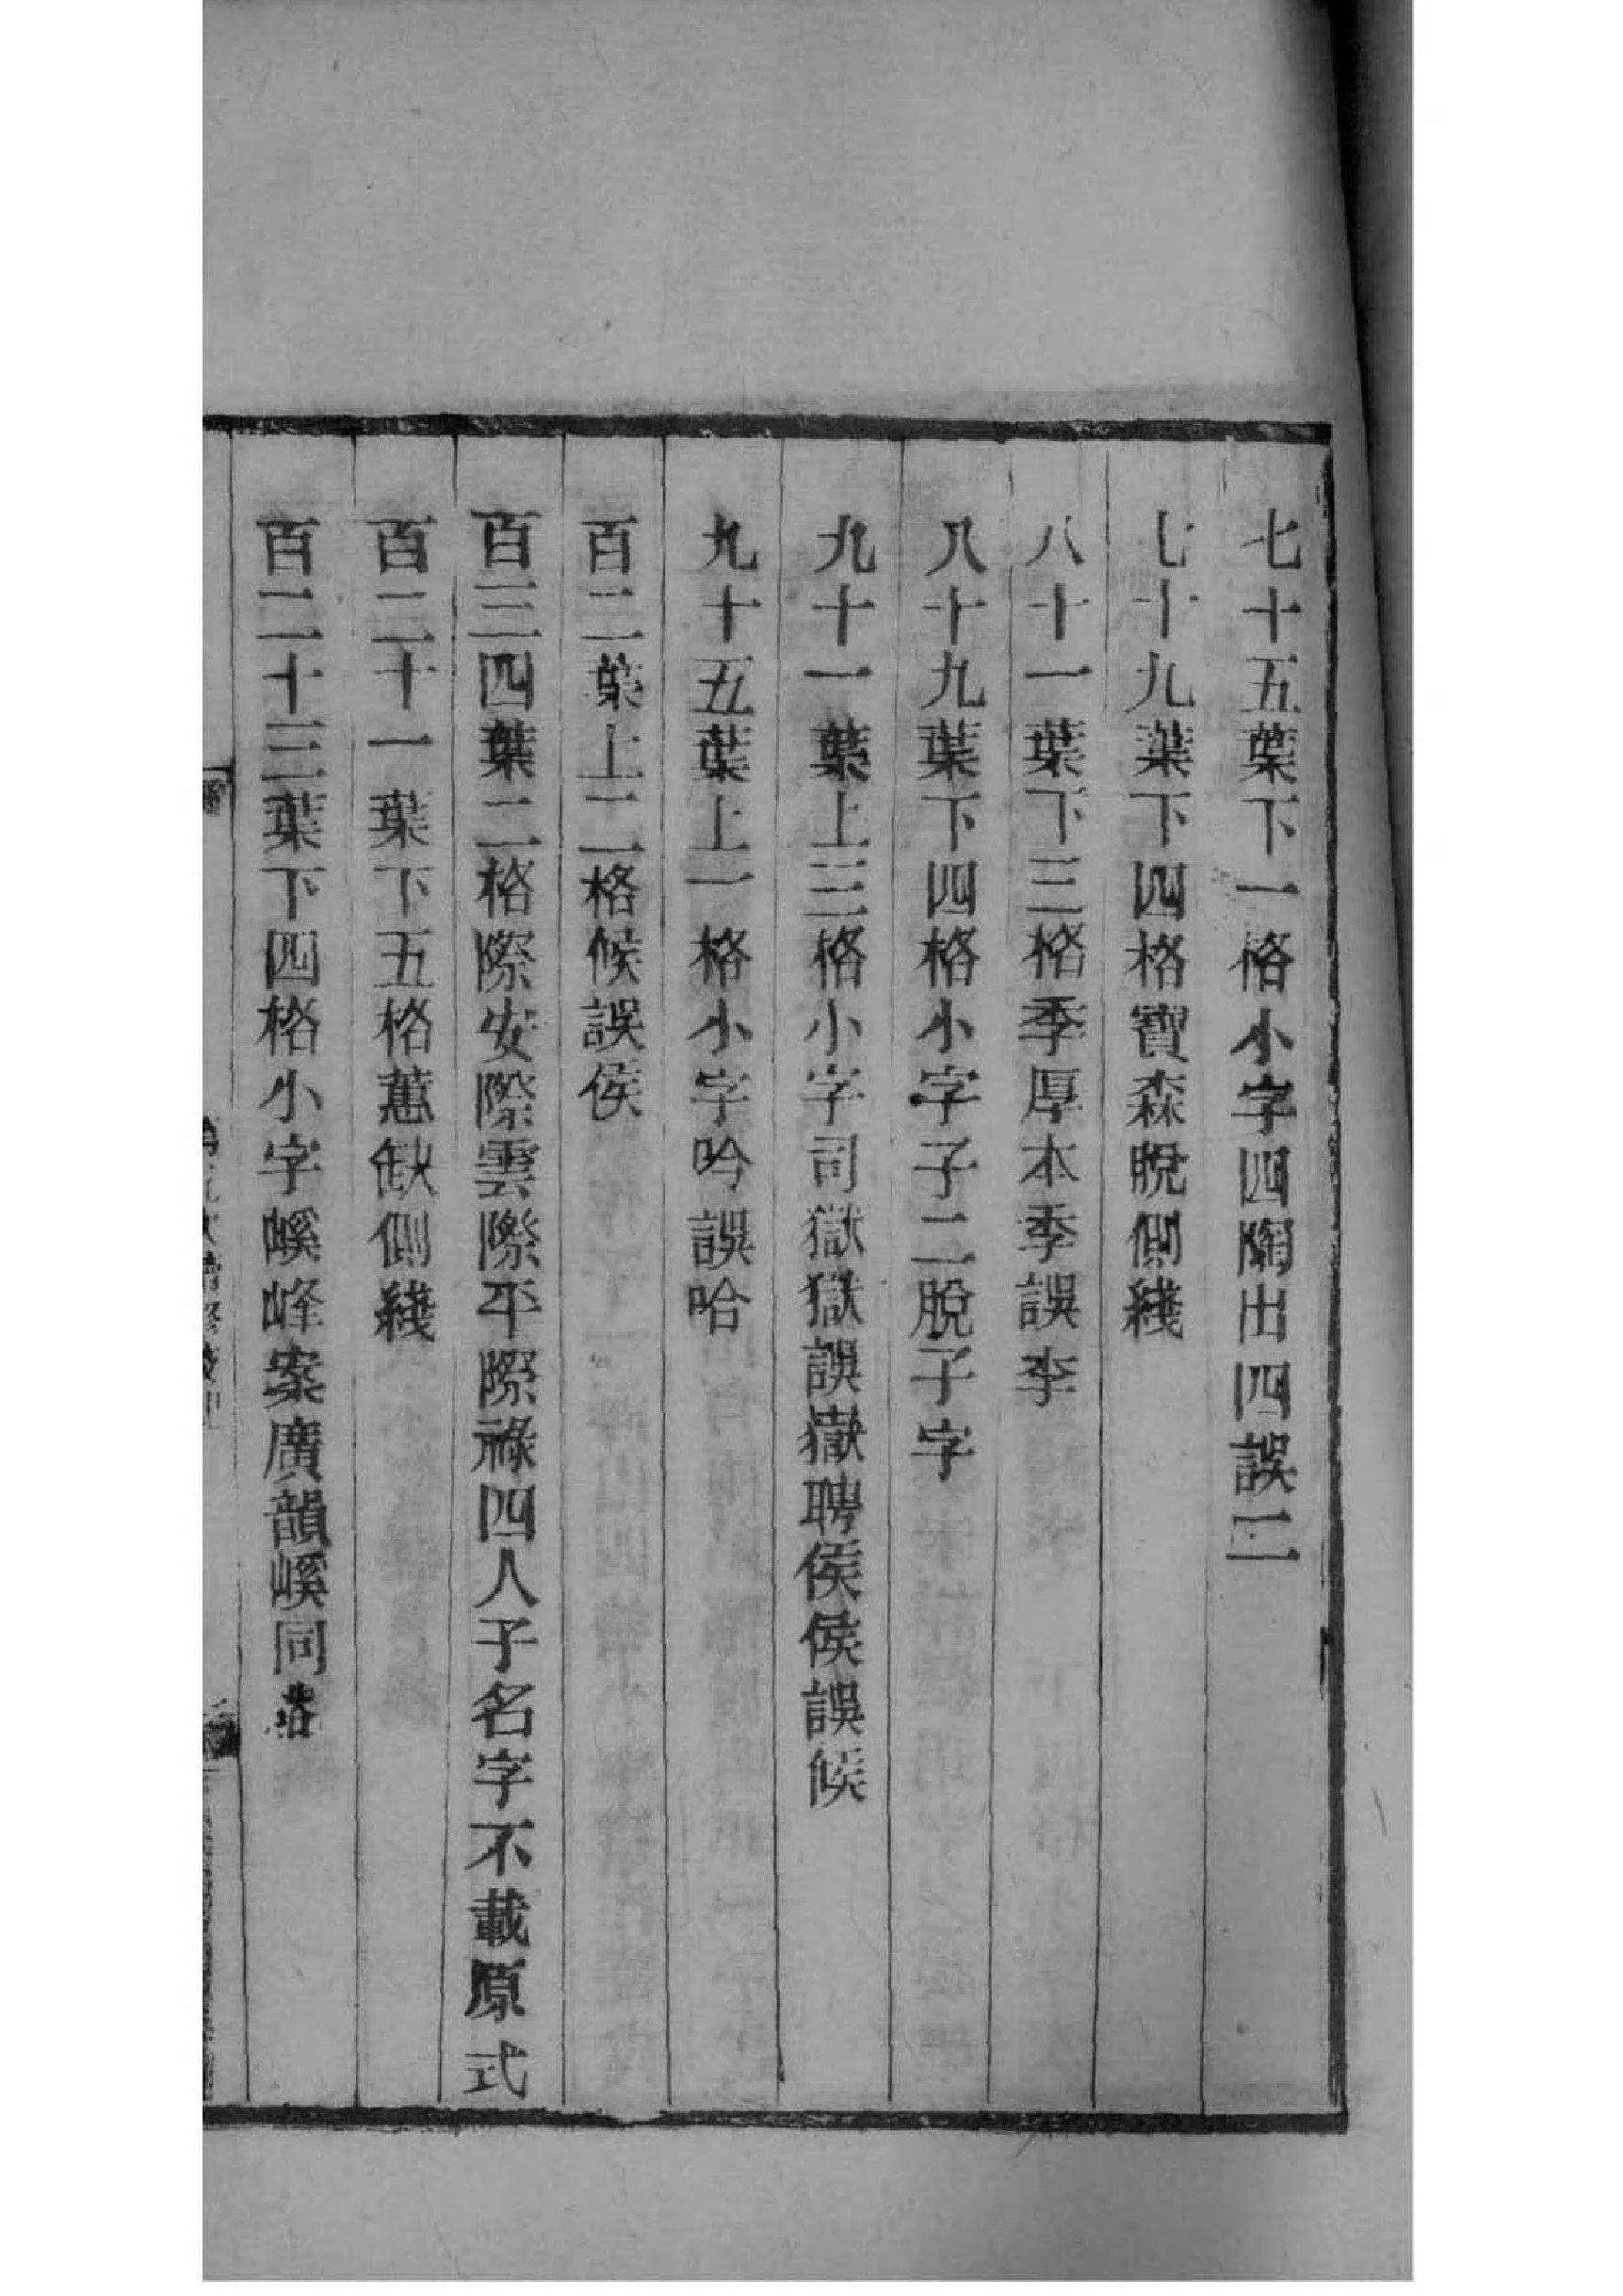 七十五葉下一格小字四陶出四誤二
七十九葉下四格寶森脫側綫
八十一葉下三格季厚本季誤李
八十九葉下四格小字子二脫子字
九十一葉上三格小字司獄獄誤嶽聘侯侯誤候
九十五葉上一格小字吟誤哈
百二葉上二格候誤侯
百三四葉二格際安際雲際平際祿四人子名字不載原式
百二十一葉下五格蕙缺側綫
百二十三葉下四格小字嵠峰案廣韻嵠同